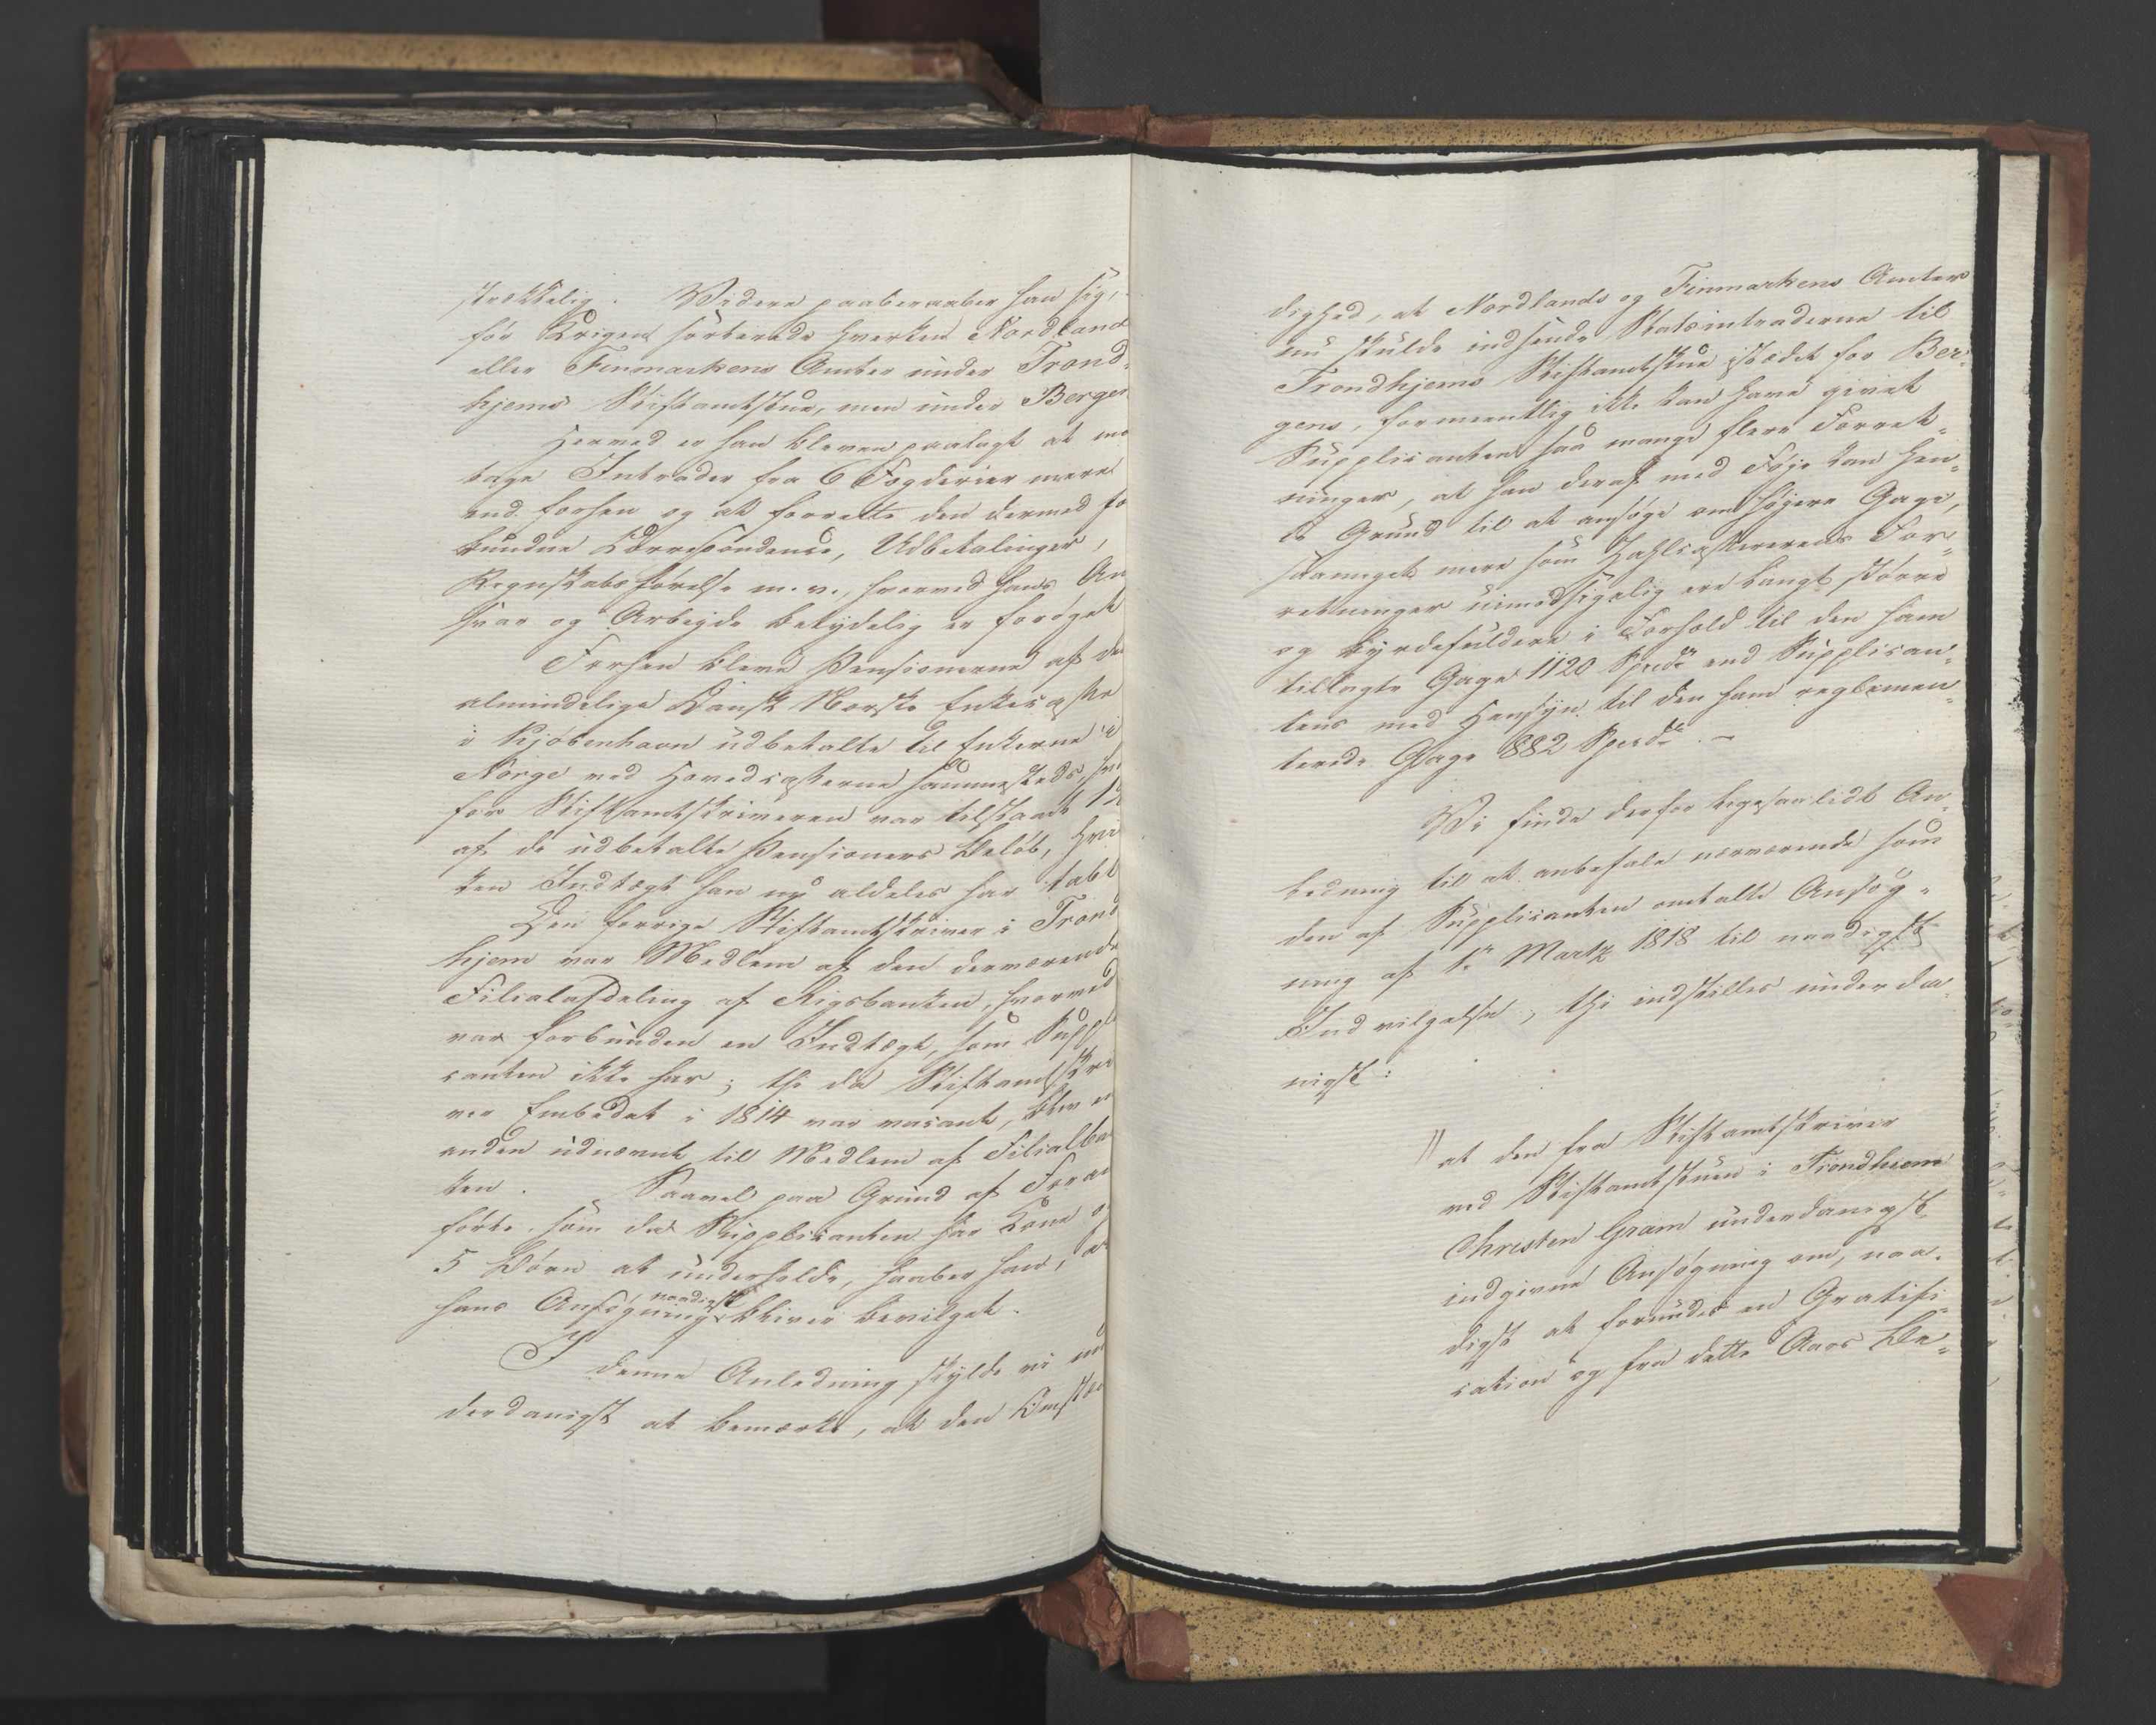 strækkelig. Videre paaberaaber han sig,
før Krigen sorterede hverken Nordland
eller Finmarkens Amter under Trond-
hjems Stiftamtstue, men under Bergen
Herved er han bleven paalagt at mo
tage Intrader fra 6 Fogderier mere
end forhen og at forrette den dermed fo
bundne Correspondence, Udbetalinger,
Regnskabsførelse m. v., hvorved hans An
svar og Arbejde betydelig er forøget
Forhen bleve Pensionerne af de
almindelige Dansk Norske Enkecasse
i Kjøbenhavn udbetalte til Enkerne i
Norge ved Hovedcasserne sammesteds, hvo
for Stiftamtskriveren var tilstaaet 1
af de udbetalte Pensioners Beløb, hvil
ken Indtægt han nu aldeles har tabt
Den forrige Stiftamtskriver i Trond
hjem var Medlem af den derværende
Filialafdeling af Rigsbanken, hvormed
var forbunden en Indtægt, som Suppli
canten ikke har; thi da Stiftamtskri
ver Embedet i 1814 var vacant, blev en
anden udnævnt til Medlem af Filialba
ken. Saavel paa Grund af Foran
førte, som da Supplicanten har Kone og
5 Børn at underholde, haaber han, at
hans Ansøgning naadigst bliver bevilget.
I denne Anledning skylde vi un
derdanigst at bemærke, at den Omstæn
dighed, at Nordlands og Finmarkens Amter
nu skulde indsende Statsintraderne til
Trondhjems Stiftamtstue istædet for Ber-
gens, formeentlig ikke kan have givet
Supplicanten saa mange flere Forret-
ninger, at han deraf med Føje kan hen-
te Grund til at ansøge om højere Gage,
saameget mere som Zahlcassererens For-
retninger uimodsigelig ere langt større
og byrdefuldere i Forhold til den ham
tillagte Gage 1120 Spcdr end Supplican-
tens med Hensyn til den ham reglemen-
terede Gage 882 Spcdr. -
Vi finde derfor ligesaalidt An-
ledning til at anbefale nærværende som
den af Supplicanten omtalte Ansøg-
ning af 1r Martz 1818 til naadigst
Indvilgelse, thi indstilles underda-
nigst:
" at den fra Stiftamtskriver
ved Stiftamtstuen i Trondhiem
Christen Gram underdanigst
indgivne Ansøgning om, naa-
digst at forundes en Gratifi-
cation og fra dette Aars Be-